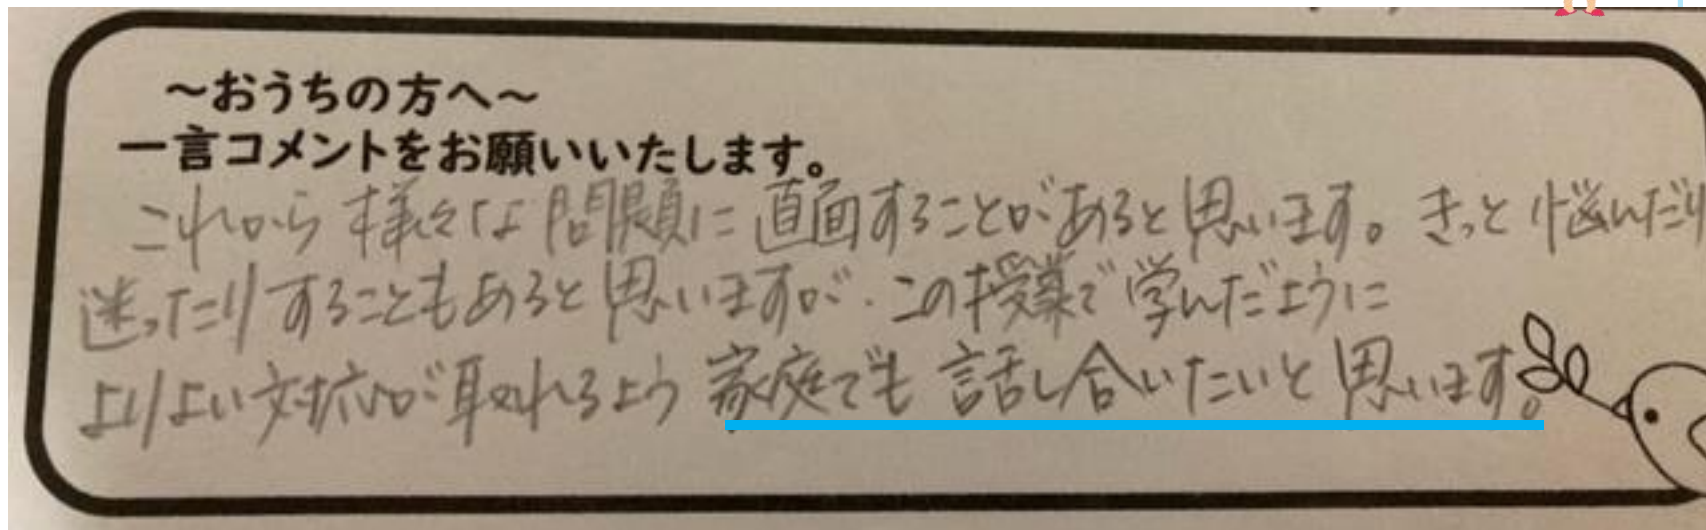 ～おうちの方へ～
一言コメントをお願いいたします。
これから様々な問題に直面することがあると思います。きっと悩んだり
迷ったりすることもあると思いますが、この授業で学んだように
よりよい対応が取れるよう家庭でも話し合いたいと思います。